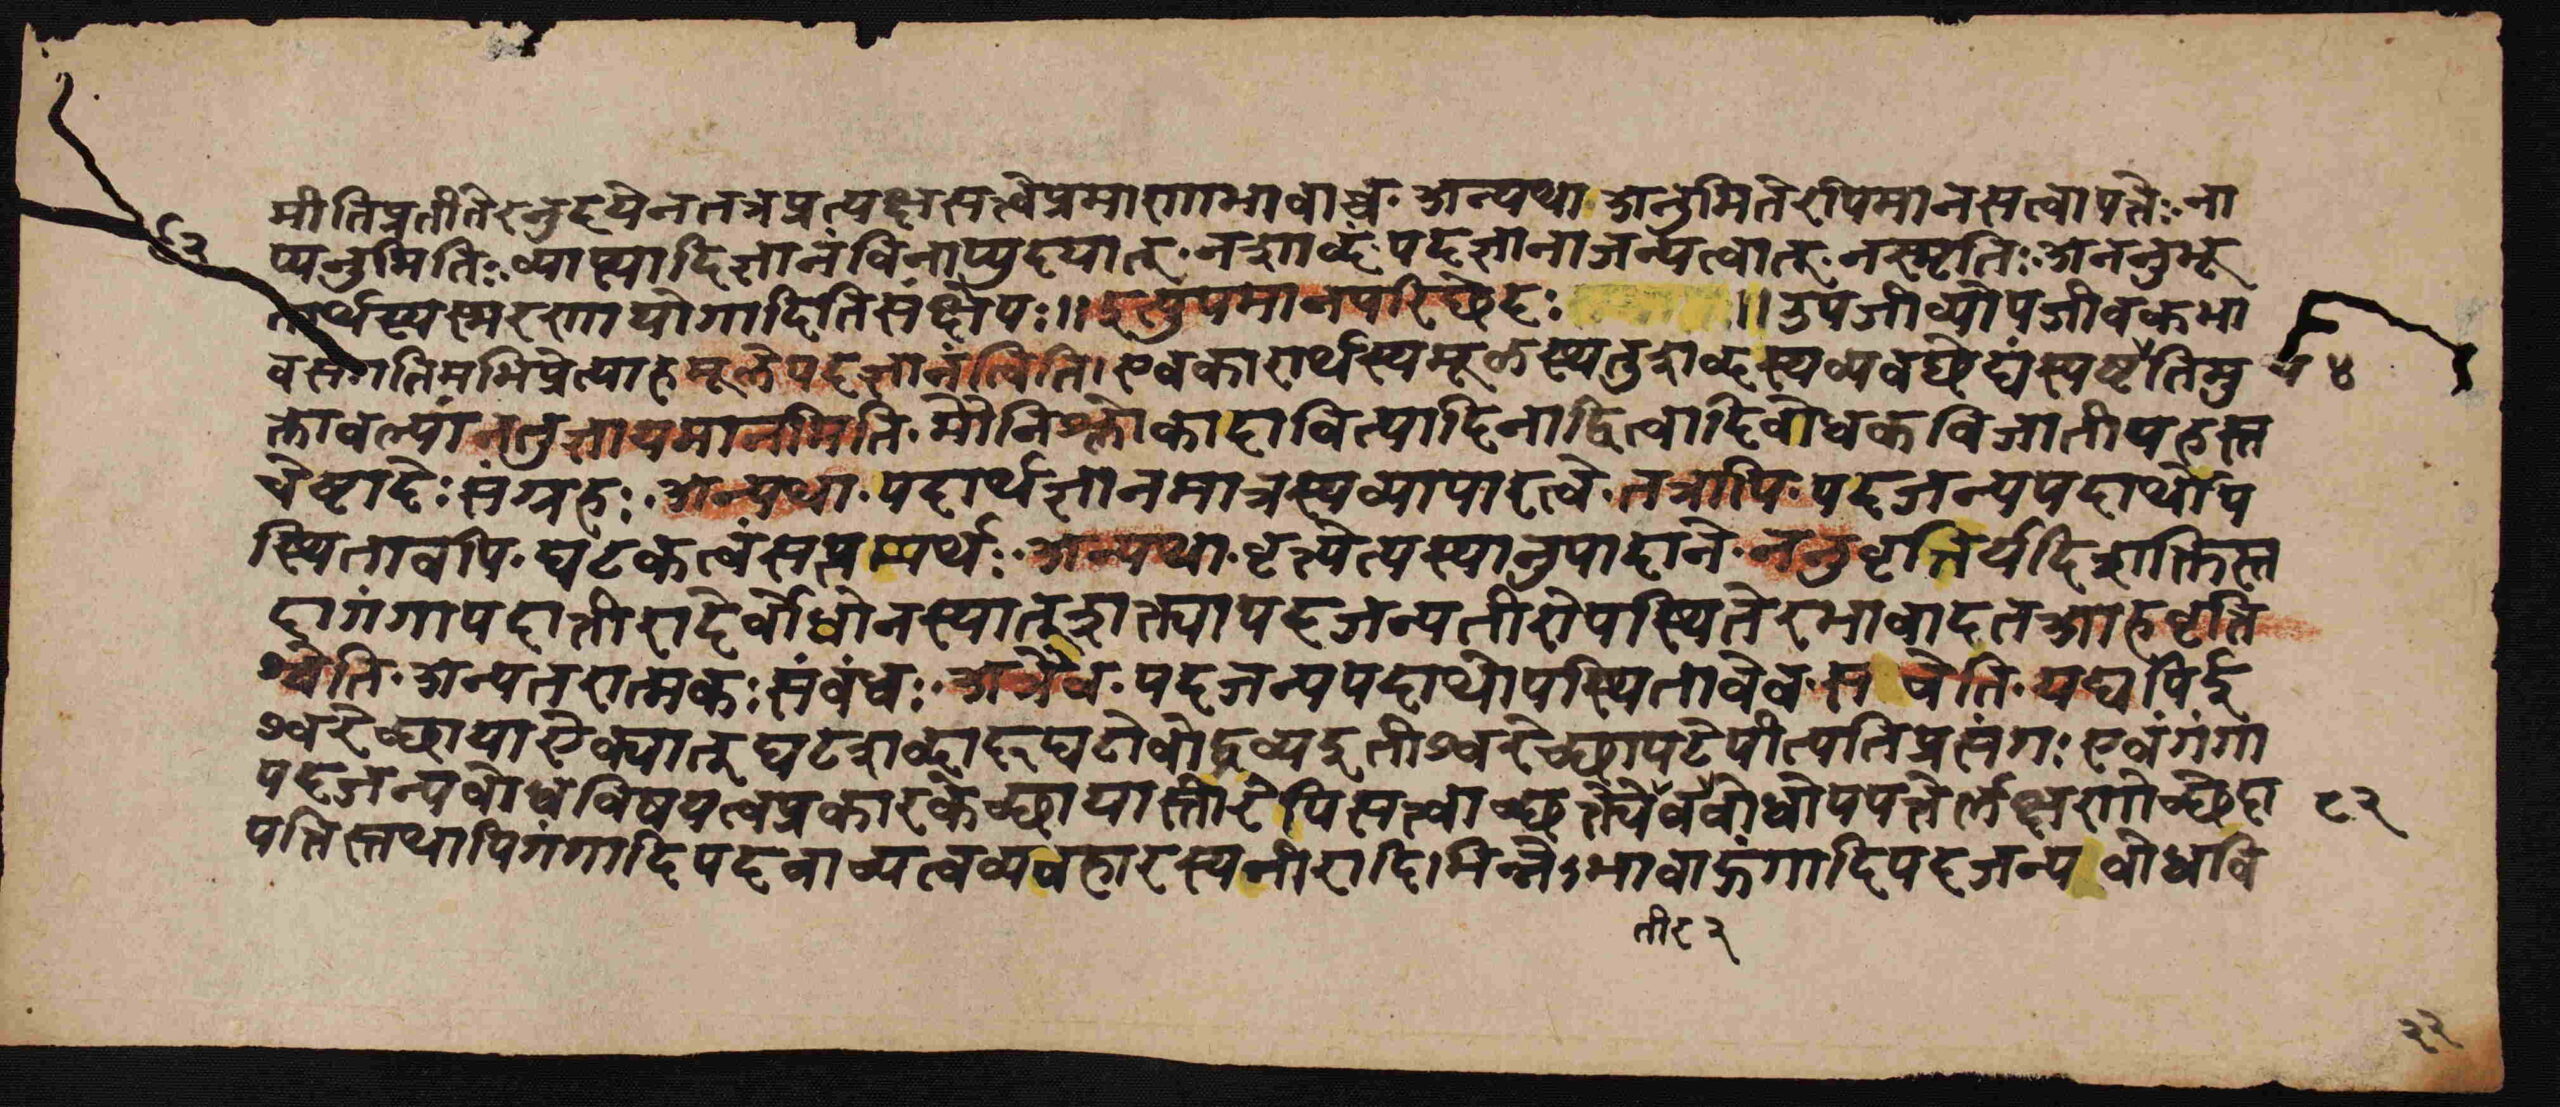 मीतिप्रतीतेरनुदयेनतत्रप्रत्यक्षसत्वेप्रमाणाभावाच्च. अन्यथा. अनुमितेरपिमानसत्वापत्तेः. ना
प्यनुमितिः. व्याप्त्यादिज्ञानंविनाप्युदयात्. नशाब्दं. पदज्ञानाजन्यत्वात्. नस्मृतिः. अननुभू
तार्थस्यस्मरणायोगादितिसंक्षेपः॥ इत्युपमानपरिछेदः ॥ उपजीव्योपजीवकभा
वसंगतिमभिप्रेत्याहमूलेपदज्ञानंत्विति। एवकारार्थस्यमूलस्यतुशब्दस्यव्यवछेद्यंस्पष्टयतिमु ४
क्तावल्यांनतुज्ञायमानमिति. मौनिश्लोकादावित्यादिनाद्वित्वादिबोधकविजातीयहस्त
चेष्टादेः संग्रहः. अन्यथा. पदार्थज्ञानमात्रस्यव्यापारत्वे. तत्रापि. पदजन्यपदार्थोप
स्थितावपि. घटकत्वंसप्तम्यर्थः. अन्यथा. वृत्त्येत्यस्यानुपादाने. ननुवृत्तिर्यदिशक्तिस्त
दागंगापदात्तीरादेर्बोधोनस्यात्शक्त्यापदजन्यतीरोपस्थितेरभावादतआहवृत्ति
श्चेति. अन्यतरात्मकः संबंधः. अत्रैव. पदजन्यपदार्थोपस्थितावेव. स चेति. यद्यपिई
श्वरेच्छायाऐक्यात्घटशब्दाद्घटोबोद्धव्यइतीश्वरेच्छापटेपीत्यतिप्रसंगः एवंगंगा
पदजन्यबोधविषयत्वप्रकारकेच्छायास्तीरेपिसत्वाच्छक्त्यैवबोधोपपत्तेर्लक्षणोच्छेदा ८२
पत्तिस्तथापिगंगादिपदवाच्यत्वव्यवहारस्यतीरादिभिन्नेऽभावाद्गंगादिपदजन्य बोधवि
ती८२
३२